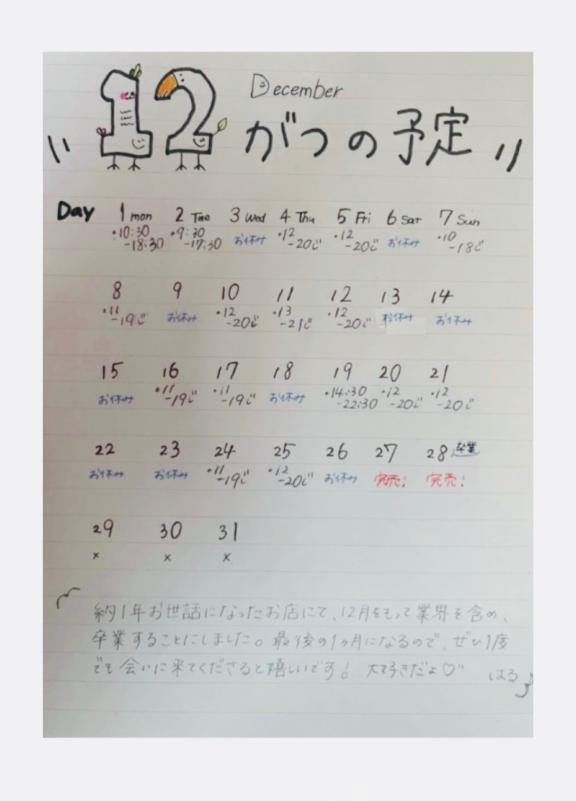 December
12がつの予定
Day 1 mon 2 Tue 3 Wed 4 Thu 5 Fri 6 Sat 7 Sun
・10:30-18:30 ・9:30-17:30 お休み ・12-20じ ・12-20じ お休み ・10-18じ
8 9 10 11 12 13 14
・11-19じ お休み ・12-20じ ・13-21じ ・12-20じ お休み お休み
15 16 17 18 19 20 21
お休み ・11-19じ ・11-19じ お休み ・14:30-22:30 ・12-20じ ・12-20じ
22 23 24 25 26 27 28 卒業
お休み お休み ・11-19じ ・12-20じ お休み 完売! 完売!
29 30 31
x x x
約1年お世話になったお店にて、12月をもって業界を含め、
卒業することにしました。最後の1ヶ月になるので、ぜひ1度
でも会いに来てくださると嬉しいです! 大好きだよ♡
はる